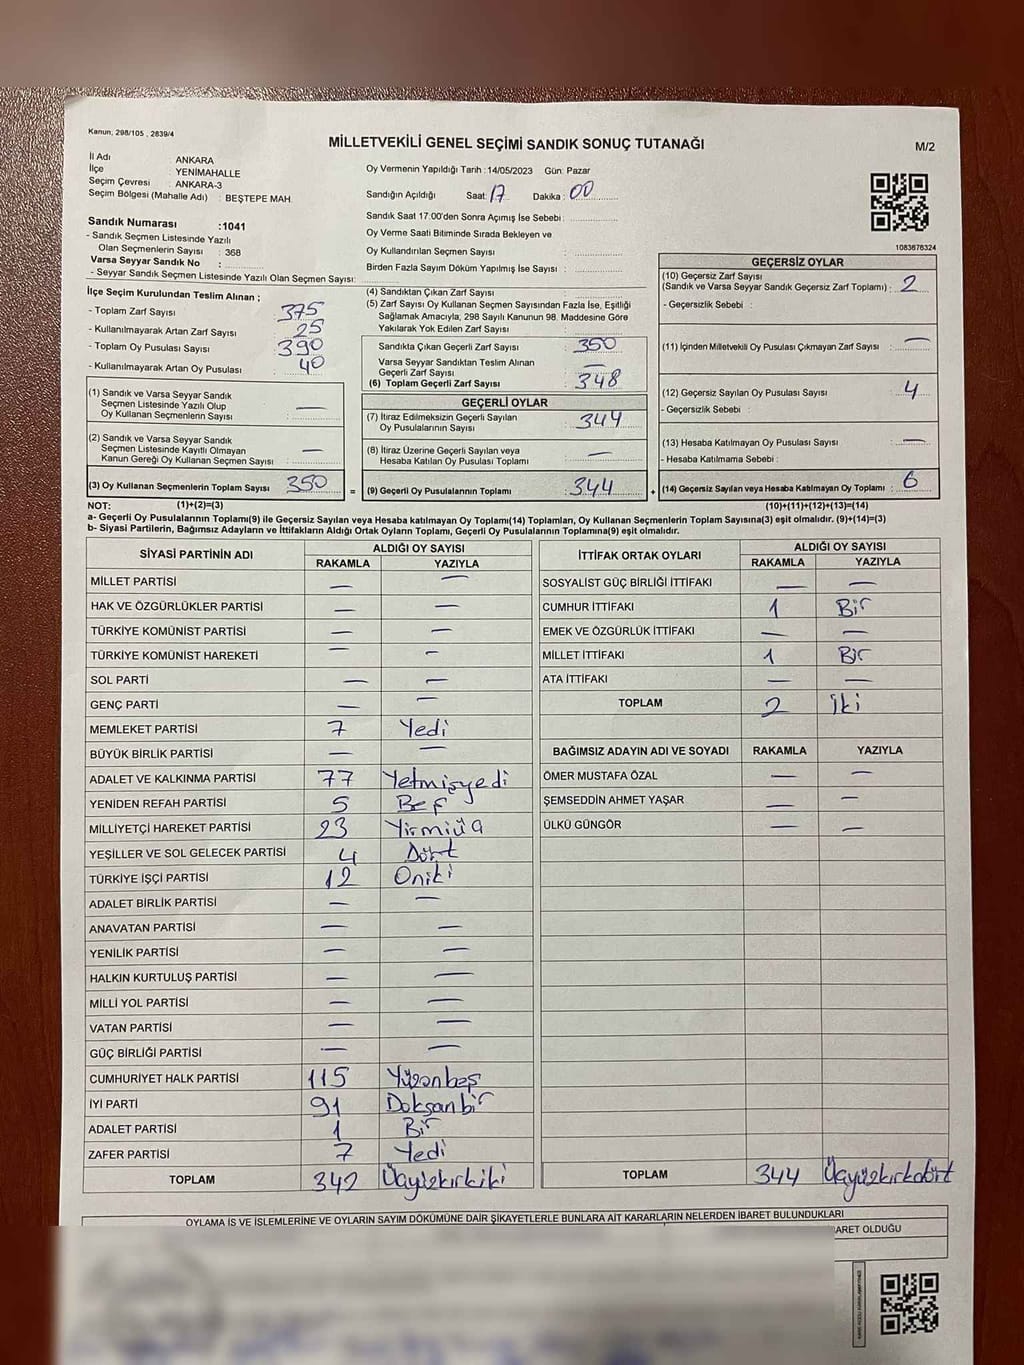 Kanun, 298/105 , 2839/4
MİLLETVEKİLİ GENEL SEÇİMİ SANDIK SONUÇ TUTANAĞI
M/2
İl Adı : ANKARA
İlçe : YENİMAHALLE
Seçim Çevresi : ANKARA-3
Seçim Bölgesi (Mahalle Adı) : BEŞTEPE MAH.
Oy Vermenin Yapıldığı Tarih :14/05/2023 Gün: Pazar
Sandığın Açıldığı Saat: 17 Dakika : 00
Sandık Saat 17:00'den Sonra Açımış İse Sebebi :
Oy Verme Saati Bitiminde Sırada Bekleyen ve
Oy Kullandırılan Seçmen Sayısı :
Birden Fazla Sayım Döküm Yapılmış İse Sayısı :
1083676324
Sandık Numarası :1041
- Sandık Seçmen Listesinde Yazılı
Olan Seçmenlerin Sayısı : 368
Varsa Seyyar Sandık No :
- Seyyar Sandık Seçmen Listesinde Yazılı Olan Seçmen Sayısı:
İlçe Seçim Kurulundan Teslim Alınan ;
- Toplam Zarf Sayısı : 375
- Kullanılmayarak Artan Zarf Sayısı : 25
- Toplam Oy Pusulası Sayısı : 390
- Kullanılmayarak Artan Oy Pusulası : 40
(1) Sandık ve Varsa Seyyar Sandık
Seçmen Listesinde Yazılı Olup
Oy Kullanan Seçmenlerin Sayısı : —
(2) Sandık ve Varsa Seyyar Sandık
Seçmen Listesinde Kayıtlı Olmayan
Kanun Gereği Oy Kullanan Seçmen Sayısı : —
(3) Oy Kullanan Seçmenlerin Toplam Sayısı : 350
(4) Sandıktan Çıkan Zarf Sayısı :
(5) Zarf Sayısı Oy Kullanan Seçmen Sayısından Fazla İse, Eşitliği
Sağlamak Amacıyla; 298 Sayılı Kanunun 98. Maddesine Göre
Yakılarak Yok Edilen Zarf Sayısı :
Sandıkta Çıkan Geçerli Zarf Sayısı : 350
Varsa Seyyar Sandıktan Teslim Alınan
Geçerli Zarf Sayısı : —
(6) Toplam Geçerli Zarf Sayısı : 348
GEÇERLİ OYLAR
(7) İtiraz Edilmeksizin Geçerli Sayılan
Oy Pusulalarının Sayısı : 344
(8) İtiraz Üzerine Geçerli Sayılan veya
Hesaba Katılan Oy Pusulası Toplamı : —
= (9) Geçerli Oy Pusulalarının Toplamı : 344
GEÇERSİZ OYLAR
(10) Geçersiz Zarf Sayısı
(Sandık ve Varsa Seyyar Sandık Geçersiz Zarf Toplamı) : 2
- Geçersizlik Sebebi :
(11) İçinden Milletvekili Oy Pusulası Çıkmayan Zarf Sayısı : —
(12) Geçersiz Sayılan Oy Pusulası Sayısı : 4
- Geçersizlik Sebebi :
(13) Hesaba Katılmayan Oy Pusulası Sayısı : —
- Hesaba Katılmama Sebebi :
+ (14) Geçersiz Sayılan veya Hesaba Katılmayan Oy Toplamı : 6
NOT: (1)+(2)=(3) (10)+(11)+(12)+(13)=(14)
a- Geçerli Oy Pusulalarının Toplamı(9) ile Geçersiz Sayılan veya Hesaba katılmayan Oy Toplamı(14) Toplamları, Oy Kullanan Seçmenlerin Toplam Sayısına(3) eşit olmalıdır. (9)+(14)=(3)
b- Siyasi Partilerin, Bağımsız Adayların ve İttifakların Aldığı Ortak Oyların Toplamı, Geçerli Oy Pusulalarının Toplamına(9) eşit olmalıdır.
SİYASİ PARTİNİN ADI ALDIĞI OY SAYISI
RAKAMLA YAZIYLA
MİLLET PARTİSİ — —
HAK VE ÖZGÜRLÜKLER PARTİSİ — —
TÜRKİYE KOMÜNİST PARTİSİ — —
TÜRKİYE KOMÜNİST HAREKETİ — —
SOL PARTİ — —
GENÇ PARTİ — —
MEMLEKET PARTİSİ 7 Yedi
BÜYÜK BİRLİK PARTİSİ — —
ADALET VE KALKINMA PARTİSİ 77 Yetmişyedi
YENİDEN REFAH PARTİSİ 5 Beş
MİLLİYETÇİ HAREKET PARTİSİ 23 Yirmiüç
YEŞİLLER VE SOL GELECEK PARTİSİ 4 Dört
TÜRKİYE İŞÇİ PARTİSİ 12 Oniki
ADALET BİRLİK PARTİSİ — —
ANAVATAN PARTİSİ — —
YENİLİK PARTİSİ — —
HALKIN KURTULUŞ PARTİSİ — —
MİLLİ YOL PARTİSİ — —
VATAN PARTİSİ — —
GÜÇ BİRLİĞİ PARTİSİ — —
CUMHURİYET HALK PARTİSİ 115 Yüzonbeş
İYİ PARTİ 91 Doksanbir
ADALET PARTİSİ 1 Bir
ZAFER PARTİSİ 7 Yedi
TOPLAM 342 Üçyüzkırkiki
İTTİFAK ORTAK OYLARI ALDIĞI OY SAYISI
RAKAMLA YAZIYLA
SOSYALİST GÜÇ BİRLİĞİ İTTİFAKI — —
CUMHUR İTTİFAKI 1 Bir
EMEK VE ÖZGÜRLÜK İTTİFAKI — —
MİLLET İTTİFAKI 1 Bir
ATA İTTİFAKI — —
TOPLAM 2 İki
BAĞIMSIZ ADAYIN ADI VE SOYADI RAKAMLA YAZIYLA
ÖMER MUSTAFA ÖZAL — —
ŞEMSEDDİN AHMET YAŞAR — —
ÜLKÜ GÜNGÖR — —
TOPLAM 344 Üçyüzkırkdört
OYLAMA İŞ VE İŞLEMLERİNE VE OYLARIN SAYIM DÖKÜMÜNE DAİR ŞİKAYETLERLE BUNLARA AİT KARARLARIN NELERDEN İBARET BULUNDUKLARI
BARET OLDUĞU